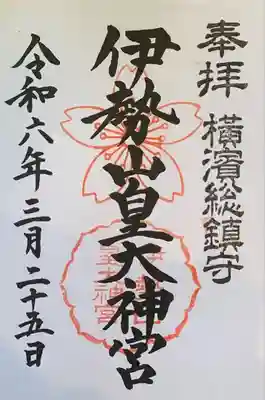 奉拝
横濱総鎮守
伊勢山皇大神宮
令和六年三月二十五日